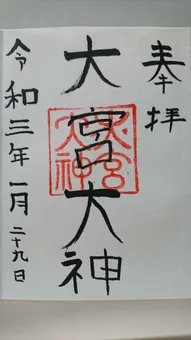 奉拝
大宮大神
令和三年一月二十九日